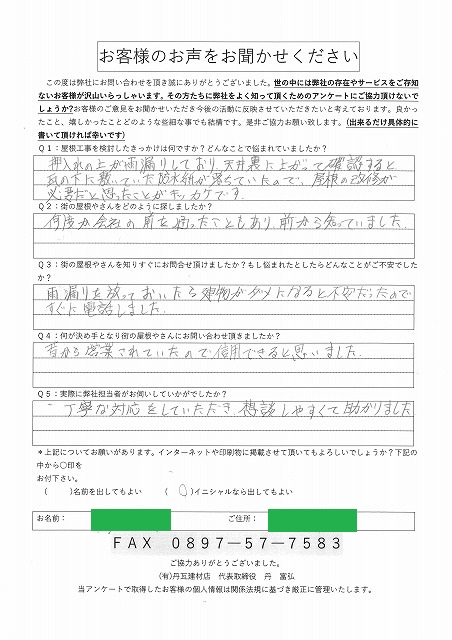 お客様のお声をお聞かせください
この度は弊社にお問い合わせを頂き誠にありがとうございました。世の中には弊社の存在やサービスをご存知
ないお客様が沢山いらっしゃいます。その方たちに弊社をよく知って頂くためのアンケートにご協力頂けないで
しょうか？お客様のご意見をお聞かせいただき今後の活動に反映させていただきたいと考えております。良かっ
たこと、嬉しかったことどのような些細な事でも結構です。是非ご協力お願い致します。（出来るだけ具体的に
書いて頂ければ幸いです）
Q１：屋根工事を検討したきっかけは何ですか？どんなことで悩まれていましたか？
押入れの上が雨漏りしており、天井裏に上がって確認すると
瓦の下に敷いていた防水紙が落ちていたので、屋根の改修が
必要だと思ったことがキッカケです.
Q２：街の屋根やさんをどのように探しましたか？
何度か会社の前を通ったこともあり、前から知っていました.
Q３：街の屋根やさんを知りすぐにお問合せ頂けましたか？もし悩まれたとしたらどんなことがご不安でした
か？
雨漏りを放っておいたら建物がダメになると不安だったので
すぐに電話しました.
Q４：何が決め手となり街の屋根やさんにお問い合わせ頂きましたか？
昔から営業されていたので信用できると思いました.
Q５：実際に弊社担当者がお伺いしていかがでしたか？
丁寧な対応をしていただき、相談しやすくて助かりました
＊上記についてお願いがあります。インターネットや印刷物に掲載させて頂いてもよろしいでしょうか？下記の
中から〇印を
お付下さい。
（　　）名前を出してもよい　　（　○　）イニシャルなら出してもよい
お名前：　　ご住所：
FAX 0897-57-7583
ご協力ありがとうございました。
(有)丹瓦建材店　代表取締役　丹　富弘
当アンケートで取得したお客様の個人情報は関係法規に基づき厳正に管理いたします。